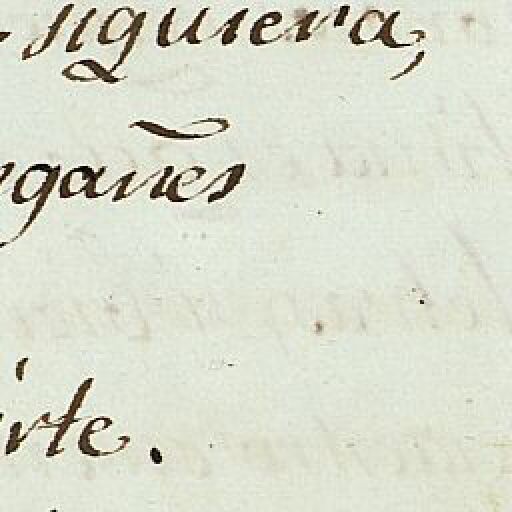 siguiera,
gañes
irte.